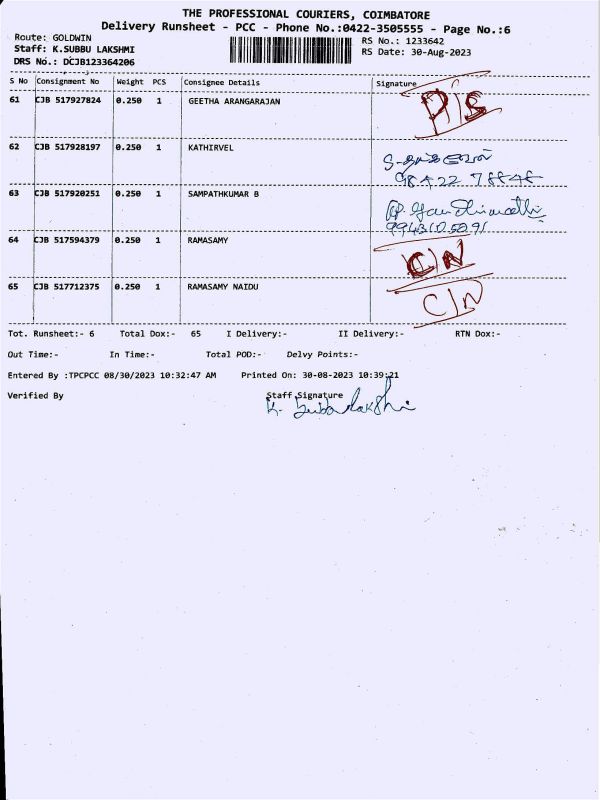 THE PROFESSIONAL COURIERS, COIMBATORE
Delivery Runsheet - PCC - Phone No.:0422-3505555 - Page No.:6
Route: GOLDWIN
RS No.: 1233642
Staff: K.SUBBU LAKSHMI
RS Date: 30-Aug-2023
DRS No.: DCJB123364206
S No Consignment No Weight PCS Consignee Details Signature
61 CJB 517927824 0.250 1 GEETHA ARANGARAJAN P/S
62 CJB 517928197 0.250 1 KATHIRVEL
63 CJB 517920251 0.250 1 SAMPATHKUMAR B
9943105091
64 CJB 517594379 0.250 1 RAMASAMY C/N
65 CJB 517712375 0.250 1 RAMASAMY NAIDU C/N
Tot. Runsheet:- 6 Total Dox:- 65 I Delivery:- II Delivery:- RTN Dox:-
Out Time:- In Time:- Total POD:- Delvy Points:-
Entered By :TPCPCC 08/30/2023 10:32:47 AM Printed On: 30-08-2023 10:39:21
Verified By Staff Signature
K. Subbulakshmi